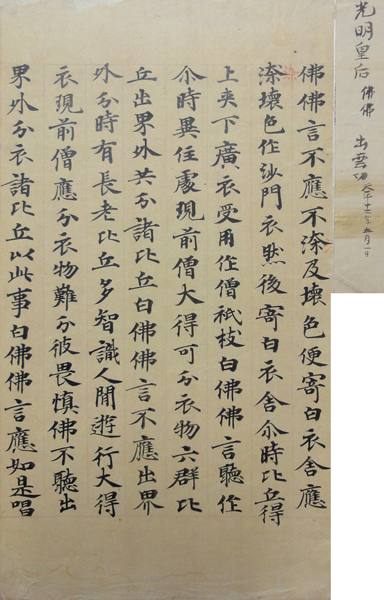 光明皇后 佛佛
出雲切
佛佛言不應不染及壞色便寄白衣舍應
染壞色作沙門衣然後寄白衣舍尒時比丘得
上夾下廣衣受用作僧祇枝白佛佛言聽作
尒時異住處現前僧大得可分衣物六群比
丘出界外共分諸比丘白佛佛言不應出界
外分時有長老比丘多智識人間遊行大得
衣現前僧應分衣物難分彼畏慎佛不聽出
界外分衣諸比丘以此事白佛佛言應如是唱